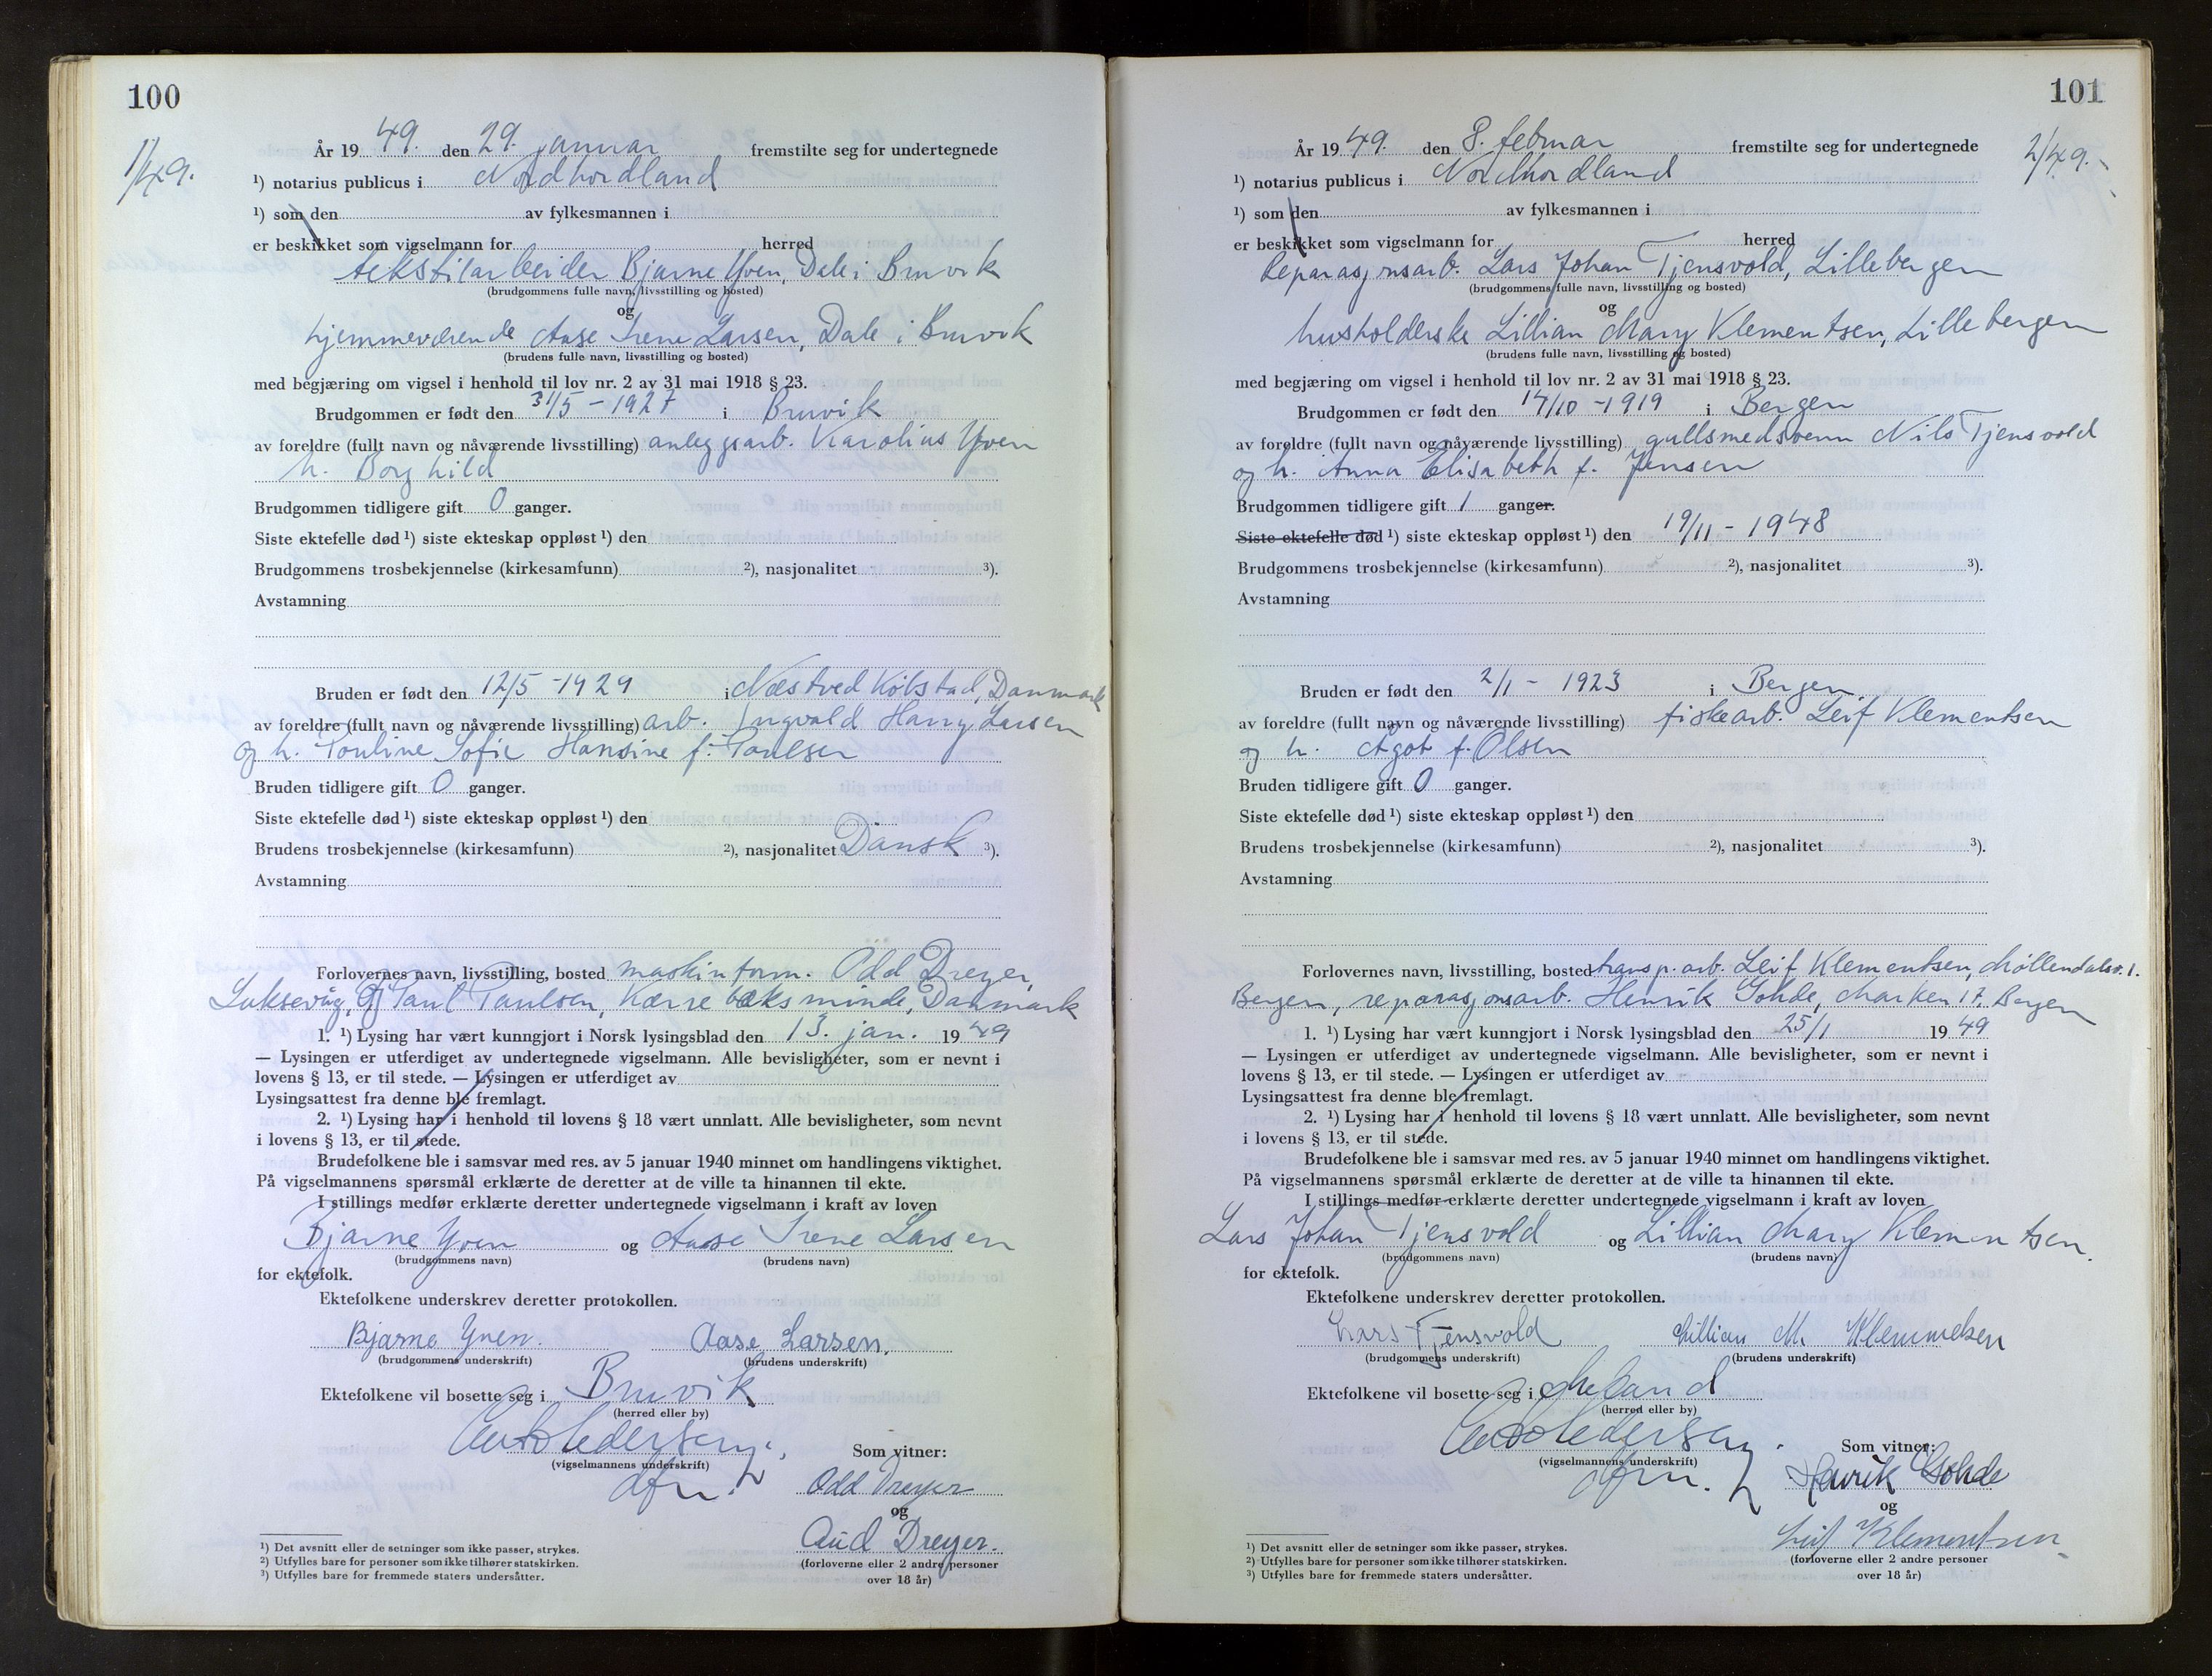 100
1/49.
År 19 49. den 29. januar fremstilte seg for undertegnede
¹) notarius publicus i Nordhordland
¹) som den av fylkesmannen i
er beskikket som vigselmann for herred
tekstilarbeider Bjarne Yven, Dale i Bruvik
(brudgommens fulle navn, livsstilling og bosted)
og
hjemmeværende Aase Irene Larsen, Dale i Bruvik
(brudens fulle navn, livsstilling og bosted)
med begjæring om vigsel i henhold til lov nr. 2 av 31 mai 1918 § 23.
Brudgommen er født den 31/5 - 1927 i Bruvik
av foreldre (fullt navn og nåværende livsstilling) anleggsarb. Karolius Yven
h. Borghild
Brudgommen tidligere gift 0 ganger.
Siste ektefelle død ¹) siste ekteskap oppløst ¹) den
Brudgommens trosbekjennelse (kirkesamfunn) ²), nasjonalitet ³).
Avstamning
Bruden er født den 12/5 - 1929 i Næstved Købstad, Danmark
av foreldre (fullt navn og nåværende livsstilling) arb. Ingvald Harry Larsen
og h. Pouline Sofie Hansine f. Paulsen
Bruden tidligere gift 0 ganger.
Siste ektefelle død ¹) siste ekteskap oppløst ¹) den
Brudens trosbekjennelse (kirkesamfunn) ²), nasjonalitet Dansk ³).
Avstamning
Forlovernes navn, livsstilling, bosted maskinform. Odd Dreyer,
Laksevåg, og Paul Paulsen, Karrebæksminde, Danmark
1. ¹) Lysing har vært kunngjort i Norsk lysingsblad den 13. jan. 19 49
— Lysingen er utferdiget av undertegnede vigselmann. Alle bevisligheter, som er nevnt i
lovens § 13, er til stede. — Lysingen er utferdiget av
Lysingsattest fra denne ble fremlagt.
2. ¹) Lysing har i henhold til lovens § 18 vært unnlatt. Alle bevisligheter, som nevnt
i lovens § 13, er til stede.
Brudefolkene ble i samsvar med res. av 5 januar 1940 minnet om handlingens viktighet.
På vigselmannens spørsmål erklærte de deretter at de ville ta hinannen til ekte.
I stillings medfør erklærte deretter undertegnede vigselmann i kraft av loven
Bjarne Yven og Aase Irene Larsen
(brudgommens navn) (brudens navn)
for ektefolk.
Ektefolkene underskrev deretter protokollen.
Bjarne Yven. Aase Larsen.
(brudgommens underskrift) (brudens underskrift)
Ektefolkene vil bosette seg i Bruvik
(herred eller by)
Som vitner:
(vigselmannens underskrift)
dfm.
Odd Dreyer
og
Aud Dreyer.
(forloverne eller 2 andre personer
over 18 år)
¹) Det avsnitt eller de setninger som ikke passer, strykes.
²) Utfylles bare for personer som ikke tilhører statskirken.
³) Utfylles bare for fremmede staters undersåtter.
101
2/49.
År 19 49. den 8. februar fremstilte seg for undertegnede
¹) notarius publicus i Nordhordland
¹) som den av fylkesmannen i
er beskikket som vigselmann for herred
Reparasjonsarb. Lars Johan Tjensvold, Lillebergen
(brudgommens fulle navn, livsstilling og bosted)
og
husholderske Lillian Mary Klementsen, Lillebergen
(brudens fulle navn, livsstilling og bosted)
med begjæring om vigsel i henhold til lov nr. 2 av 31 mai 1918 § 23.
Brudgommen er født den 17/10 - 1919 i Bergen
av foreldre (fullt navn og nåværende livsstilling) gullsmedsvenn Nils Tjensvold
og h. Anna Elisabeth f. Jensen
Brudgommen tidligere gift 1 ganger.
Siste ektefelle død ¹) siste ekteskap oppløst ¹) den 19/11 - 1948
Brudgommens trosbekjennelse (kirkesamfunn) ²), nasjonalitet ³).
Avstamning
Bruden er født den 2/1 - 1923 i Bergen.
av foreldre (fullt navn og nåværende livsstilling) fiskearb. Leif Klementsen
og h. Ågot f. Olsen
Bruden tidligere gift 0 ganger.
Siste ektefelle død ¹) siste ekteskap oppløst ¹) den
Brudens trosbekjennelse (kirkesamfunn) ²), nasjonalitet ³).
Avstamning
Forlovernes navn, livsstilling, bosted transp. arb. Leif Klementsen, Møllendalsv. 1.
Bergen, reparasjonsarb. Henrik Gohde, Marken 17. Bergen
1. ¹) Lysing har vært kunngjort i Norsk lysingsblad den 25/1 19 49
— Lysingen er utferdiget av undertegnede vigselmann. Alle bevisligheter, som er nevnt i
lovens § 13, er til stede. — Lysingen er utferdiget av
Lysingsattest fra denne ble fremlagt.
2. ¹) Lysing har i henhold til lovens § 18 vært unnlatt. Alle bevisligheter, som nevnt
i lovens § 13, er til stede.
Brudefolkene ble i samsvar med res. av 5 januar 1940 minnet om handlingens viktighet.
På vigselmannens spørsmål erklærte de deretter at de ville ta hinannen til ekte.
I stillings medfør erklærte deretter undertegnede vigselmann i kraft av loven
Lars Johan Tjensvold og Lillian Mary Klementsen.
(brudgommens navn) (brudens navn)
for ektefolk.
Ektefolkene underskrev deretter protokollen.
Lars Tjensvold Lillian M. Klemmetsen
(brudgommens underskrift) (brudens underskrift)
Ektefolkene vil bosette seg i Meland
(herred eller by)
Som vitner:
(vigselmannens underskrift)
dfm.
Henrik Gohde
og
Leif Klementsen
(forloverne eller 2 andre personer
over 18 år)
¹) Det avsnitt eller de setninger som ikke passer, strykes.
²) Utfylles bare for personer som ikke tilhører statskirken.
³) Utfylles bare for fremmede staters undersåtter.